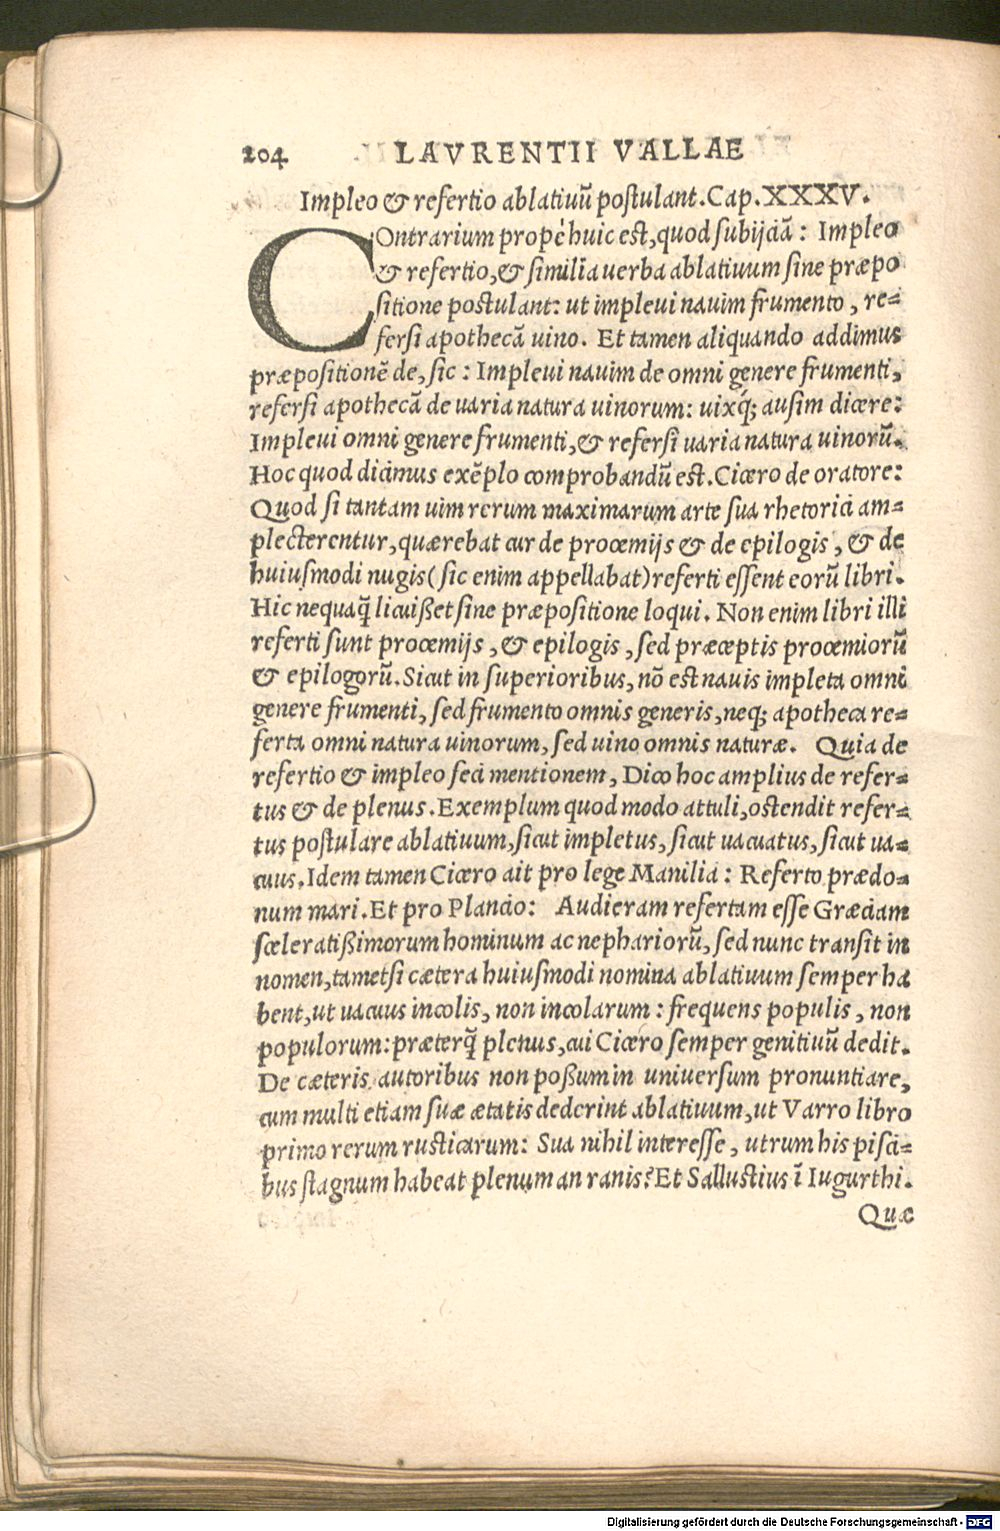 204 LAVRENTII VALLAE
Impleo & refertio ablatiuũ postulant. Cap. XXXV.
COntrarium propè huic est, quod subijciã: Impleo
& refertio, & similia uerba ablatiuum sine præpo
sitione postulant: ut impleui nauim frumento, re=
fersi apothecã uino. Et tamen aliquando addimus
præpositionẽ de, sic: Impleui nauim de omni genere frumenti,
refersi apothecã de uaria natura uinorum: uixq́; ausim dicere:
Impleui omni genere frumenti, & refersi uaria natura uinorũ.
Hoc quod dicimus exẽplo comprobandũ est. Cicero de oratore:
Quod si tantam uim rerum maximarum arte sua rhetorici am=
plecterentur, quærebat cur de proœmijs & de epilogis, & de
huiusmodi nugis (sic enim appellabat) referti essent eorũ libri.
Hic nequaq̃ licuißet sine præpositione loqui. Non enim libri illi
referti sunt proœmijs, & epilogis, sed præceptis proœmiorũ
& epilogorũ. Sicut in superioribus, nõ est nauis impleta omni
genere frumenti, sed frumento omnis generis, neq; apotheca re=
ferta omni natura uinorum, sed uino omnis naturæ. Quia de
refertio & impleo feci mentionem, Dico hoc amplius de refer=
tus & de plenus. Exemplum quod modo attuli, ostendit refer=
tus postulare ablatiuum, sicut impletus, sicut uacuatus, sicut ua=
cuus. Idem tamen Cicero ait pro lege Manilia: Referto prædo=
num mari. Et pro Plancio: Audieram refertam esse Græciam
sceleratißimorum hominum ac nephariorũ, sed nunc transit in
nomen, tametsi cætera huiusmodi nomina ablatiuum semper ha
bent, ut uacuus incolis, non incolarum: frequens populis, non
populorum: præterq̃ plenus, cui Cicero semper genitiuũ dedit.
De cæteris autoribus non poßum in uniuersum pronuntiare,
cum multi etiam suæ ætatis dederint ablatiuum, ut Varro libro
primo rerum rusticarum: Sua nihil interesse, utrum his pisci=
bus stagnum habeat plenum an ranis? Et Sallustius ĩ Iugurthi.
Quæ
Digitalisierung gefördert durch die Deutsche Forschungsgemeinschaft - DFG